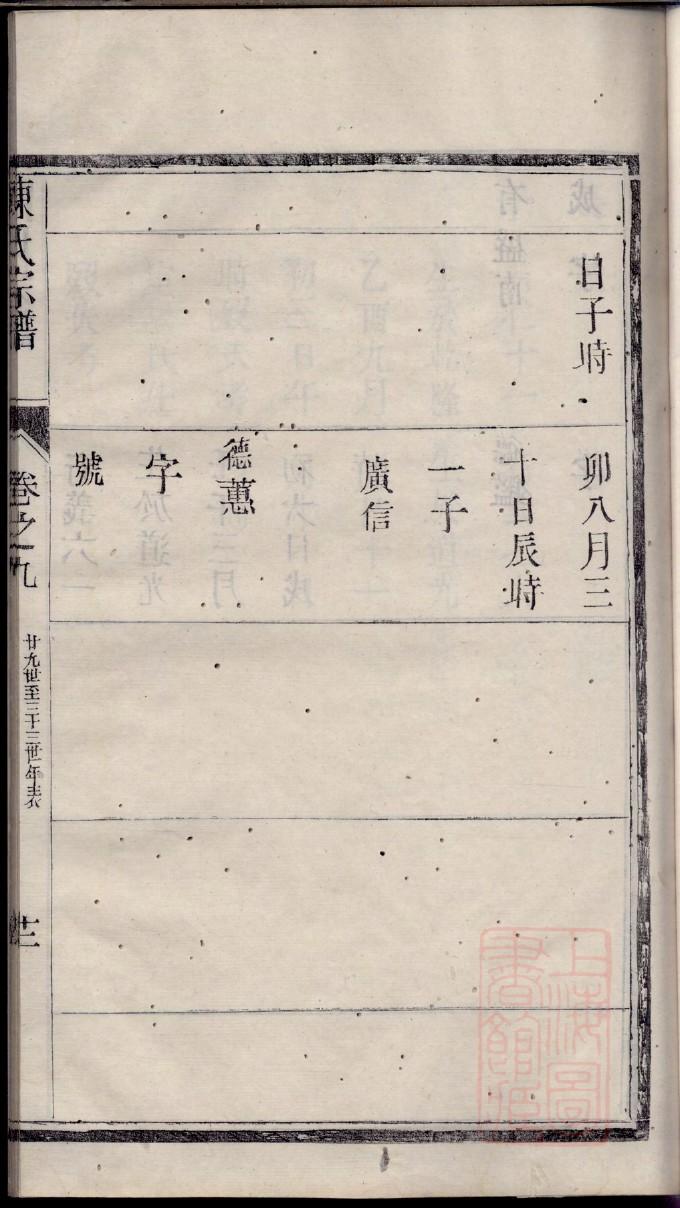 日子時
卯八月三
十日辰時
一子
廣信
德蕙
字
號
陳氏宗譜
卷之九
廿九世至三十三世年表
上海圖
書館印